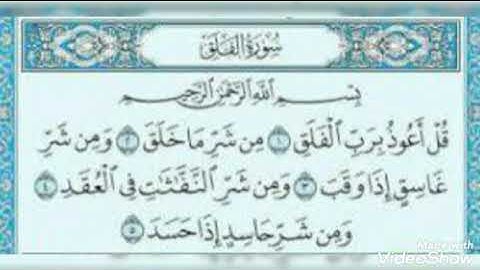 سُورَةُ الفَلَقِ
بِسْمِ اللَّهِ الرَّحْمَٰنِ الرَّحِيمِ
قُلْ أَعُوذُ بِرَبِّ الْفَلَقِ ١ مِن شَرِّ مَا خَلَقَ ٢ وَمِن شَرِّ
غَاسِقٍ إِذَا وَقَبَ ٣ وَمِن شَرِّ النَّفَّاثَاتِ فِي الْعُقَدِ ٤
وَمِن شَرِّ حَاسِدٍ إِذَا حَسَدَ ٥
Made with
VideoShow